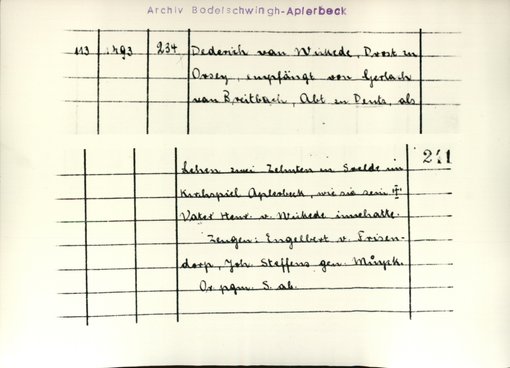 Archiv Bodelschwingh-Aplerbeck
113 1493 234 Dederich van Wickede, Drost zu
Orsey, empfängt von Gerlach
van Breitbach, Abt zu Deutz, als
241
Lehen zwei Zehnten zu Soelde im
Kirchspiel Aplerbeck, wie sie sein †
Vater Henr. v. Wickede innehatte.
Zeugen: Engelbert v. Frisen-
dorp, Joh. Steffens gen.
Or. pgm. S. ab.